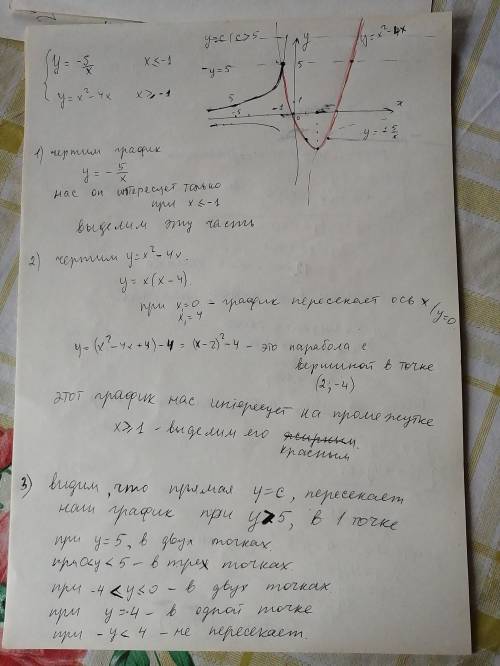 y = -5/x     x ≤ -1
y = x² - 4x     x ≥ -1
y=c (c>5
y
y=x²-4x
-y=5
5
5
-5
-1
1
0
x
y = -5/x
1) чертим график
y = - 5/x
нас он интересует только
при x ≤ -1
выделим эту часть
2) чертим y=x²-4x.
y = x(x-4).
при x=0 - график пересекает ось x (y=0
x₁=4
y=(x²-4x+4)-4 = (x-2)²-4 - это парабола с
вершиной в точке
(2;-4)
этот график нас интересует на промежутке
x≥1 - выделим его
красным
3) видим, что прямая y=c, пересекает
наш график при y>5, в 1 точке
при y=5, в двух точках.
при 0<y<5 - в трех точках
при -4<y≤0 - в двух точках
при y=-4 - в одной точке
при -y<4 - не пересекает.